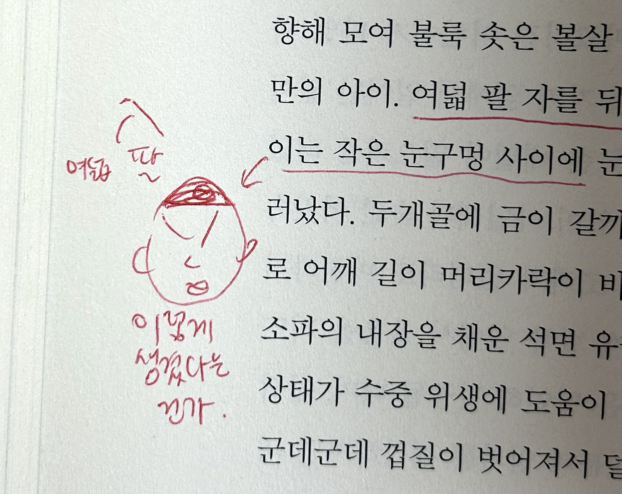 향해 모여 불룩 솟은 볼살
만의 아이. 여덟 팔 자를 뒤
이는 작은 눈구멍 사이에 눈
러났다. 두개골에 금이 갈까
로 어깨 길이 머리카락이 비
소파의 내장을 채운 석면 유
상태가 수중 위생에 도움이
군데군데 껍질이 벗어져서 덜
八
여덟 팔
이렇게
생겼다는
건가.